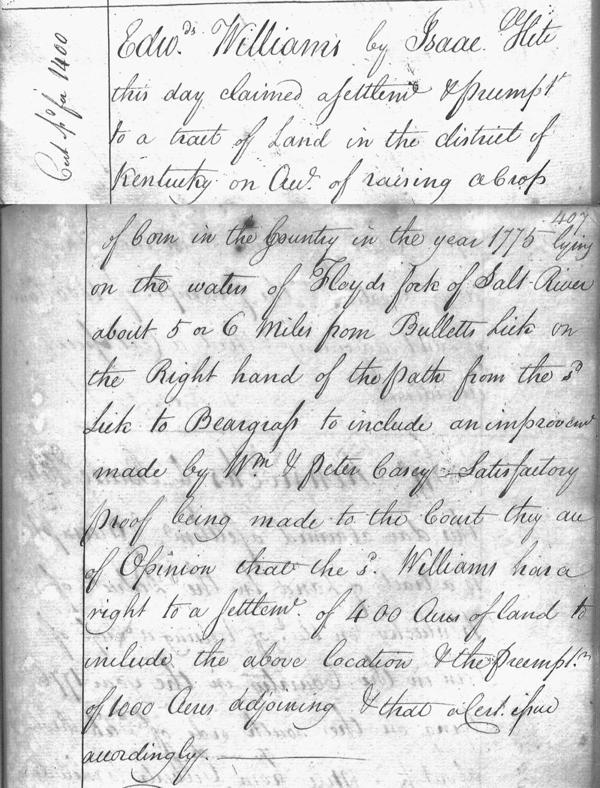 Cert. iss'd for 1400
Edw.ds Williams by Isaac Hite
this day claimed a Settlem.t & preempt.
to a tract of Land in the district of
Kentucky on Acc.t of raising a Crop
407
of Corn in the Country in the year 1775 lying
on the waters of Floyds fork of Salt River
about 5 or 6 Miles from Bulletts Lick on
the Right hand of the path from the s.d
Lick to Beargrass to include an improvem.t
made by W.m & Peter Casey Satisfactory
proof being made to the Court they are
of Opinion that the s.d Williams has a
right to a Settlem.t of 400 Acres of land to
include the above location & the Preempt.n
of 1000 Acres adjoining & that a Cert. issue
accordingly.